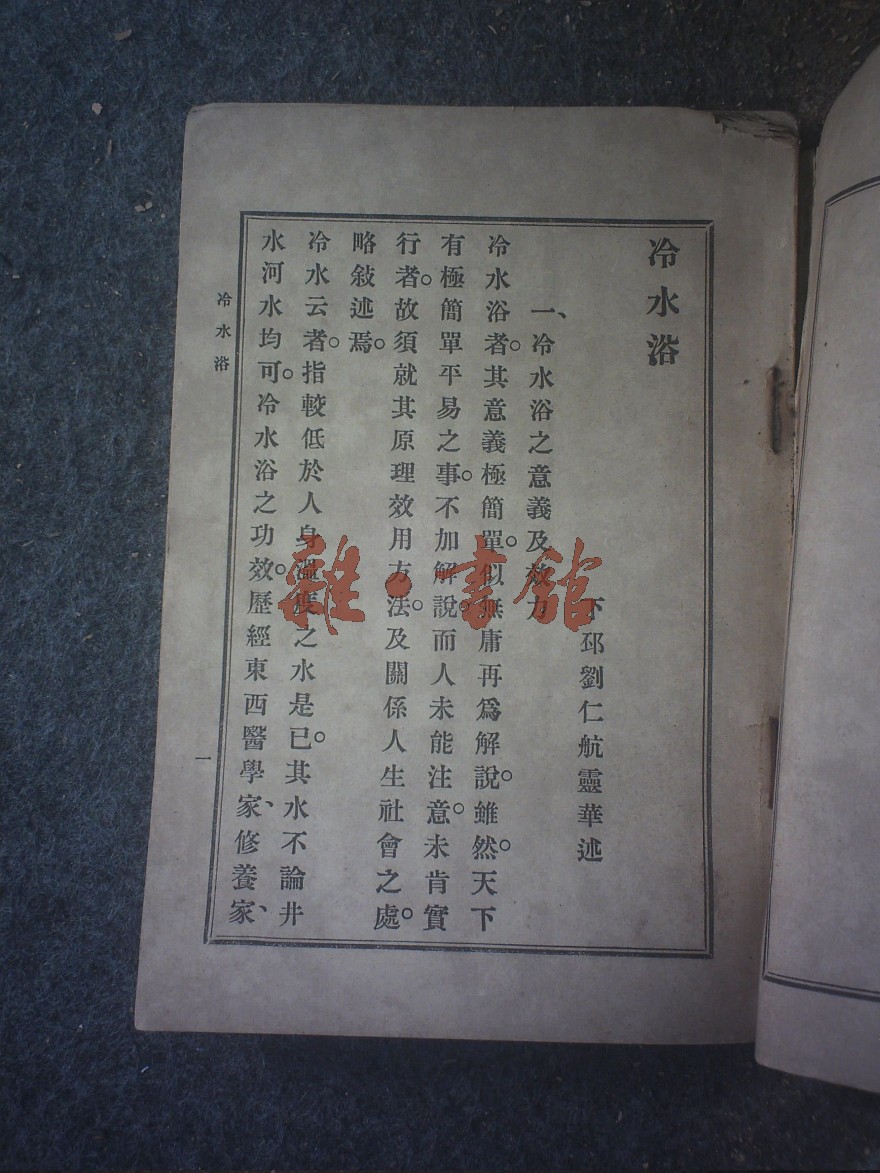 冷水浴
下邳劉仁航靈華述
一、冷水浴之意義及效力
冷水浴者。其意義極簡單。似無庸再爲解說。雖然。天下
有極簡單平易之事。不加解說。而人未能注意。未肯實
行者。故須就其原理效用方法。及關係人生社會之處。
略敍述焉。
冷水云者。指較低於人身溫度之水是已。其水不論井
水河水均可。冷水浴之功效。歷經東西醫學家、修養家、
冷水浴
一
雜·書館